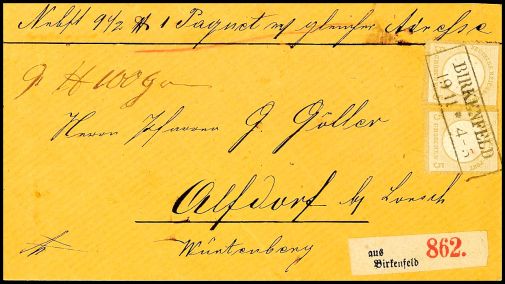 Nebst 9 1/2 ℔ 1 Paquet m/ gleicher Adresse
℔ 100 g
Herrn Pfarrer G Göller
Alfdorf by Lorsch
Würtenberg
BIRKENFELD
19 11 * 4-5
aus
Birkenfeld
862.